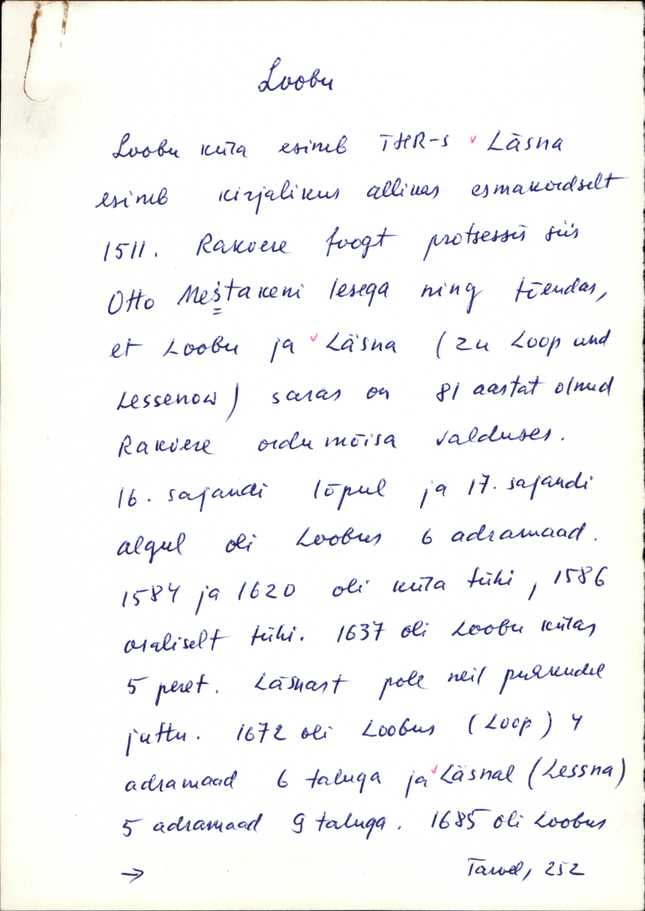 Loobu
Loobu küla esineb THR-s Läsna
esineb kirjalikus allikas esmakordselt
1511. Rakvere foogt protsessis siis
Otto Meštakeni lesega ning tõendas,
et Loobu ja Läsna (zu Loop und
Lessenow) saras on 81 aastat olnud
Rakvere ordumõisa valduses.
16. sajandi lõpul ja 17. sajandi
algul oli Loobus 6 adramaad.
1584 ja 1620 oli küla tühi, 1586
osaliselt tühi. 1637 oli Loobu külas
5 peret. Läsnast pole neil puhkudel
juttu. 1672 oli Loobus (Loop) 4
adramaad 6 taluga ja Läsnal (Lessna)
5 adramaad 9 taluga. 1685 oli Loobus
→ Tarvel, 252